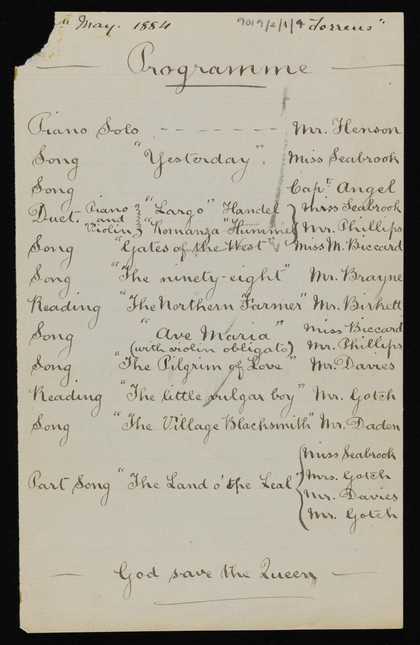 " May. 1884
9019/2/1/9 "Torrens"
Programme
Piano Solo - - - - - - - Mr. Henson
Song "Yesterday". Miss Seabrook
Song Capt. Angel
Duet. Piano and Violin } "Largo" Handel "Romanza" Hummel } Miss Seabrook Mr. Phillips
Song "Gates of the West" Miss M. Biccard
Song "The ninety-eight" Mr. Brayne
Reading "The Northern Farmer" Mr. Birkett
Song "Ave Maria" Miss Biccard
(with violin obligato) Mr. Phillips
Song "The Pilgrim of Love" Mr. Davies
Reading "The little vulgar boy" Mr. Gotch
Song "The Village Blacksmith" Mr. Daden
Part Song "The Land o' the Leal" { Miss Seabrook
Mrs. Gotch
Mr. Davies
Mr. Gotch
God save the Queen